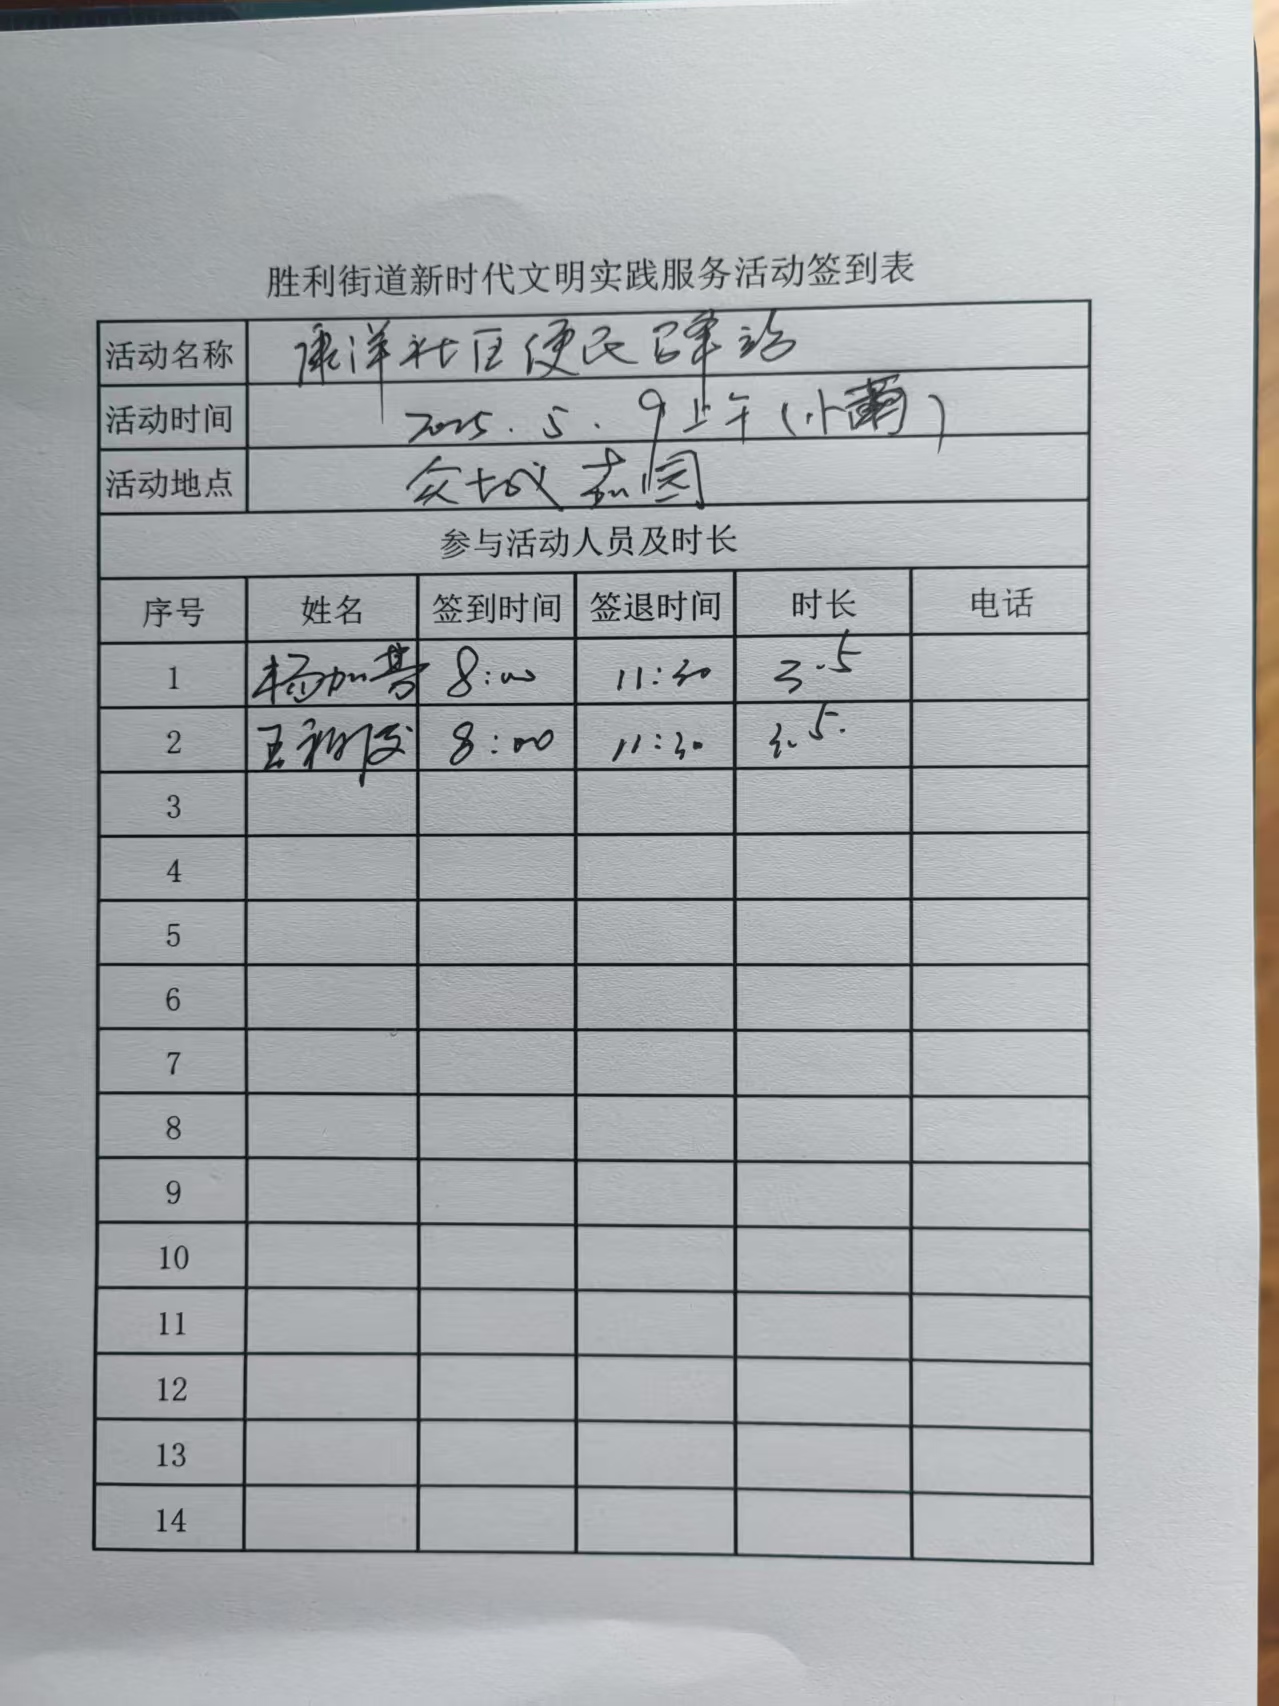 胜利街道新时代文明实践服务活动签到表
活动名称 康洋社区便民驿站
活动时间 2025.5.9上午(小蘭)
活动地点 众城嘉园
参与活动人员及时长
序号 姓名 签到时间 签退时间 时长 电话
1 杨加 8:00 11:30 3.5
2 王 8:00 11:30 3.5.
3
4
5
6
7
8
9
10
11
12
13
14